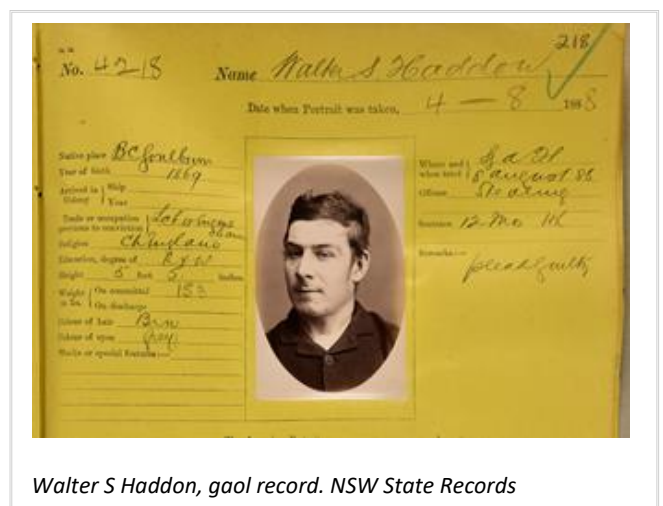 218
No. 4218 Name Walter S Haddon
Date when Portrait was taken, 4 — 8 1888
Native place BC Goulburn
Year of birth 1869
Arrived in Sydney { Ship
Year
Trade or occupation previous to conviction }
Religion Ch England
Education, degree of R & W
Height 5 feet 5 inches
Weight in lbs. { On committal 153
On discharge
Colour of hair Brn
Colour of eyes Grey
Marks or special features:—
Where and when tried } 8 August 88
Offence Stealing
Sentence 12 Mos HL
Remarks:—
plead guilty
Walter S Haddon, gaol record. NSW State Records